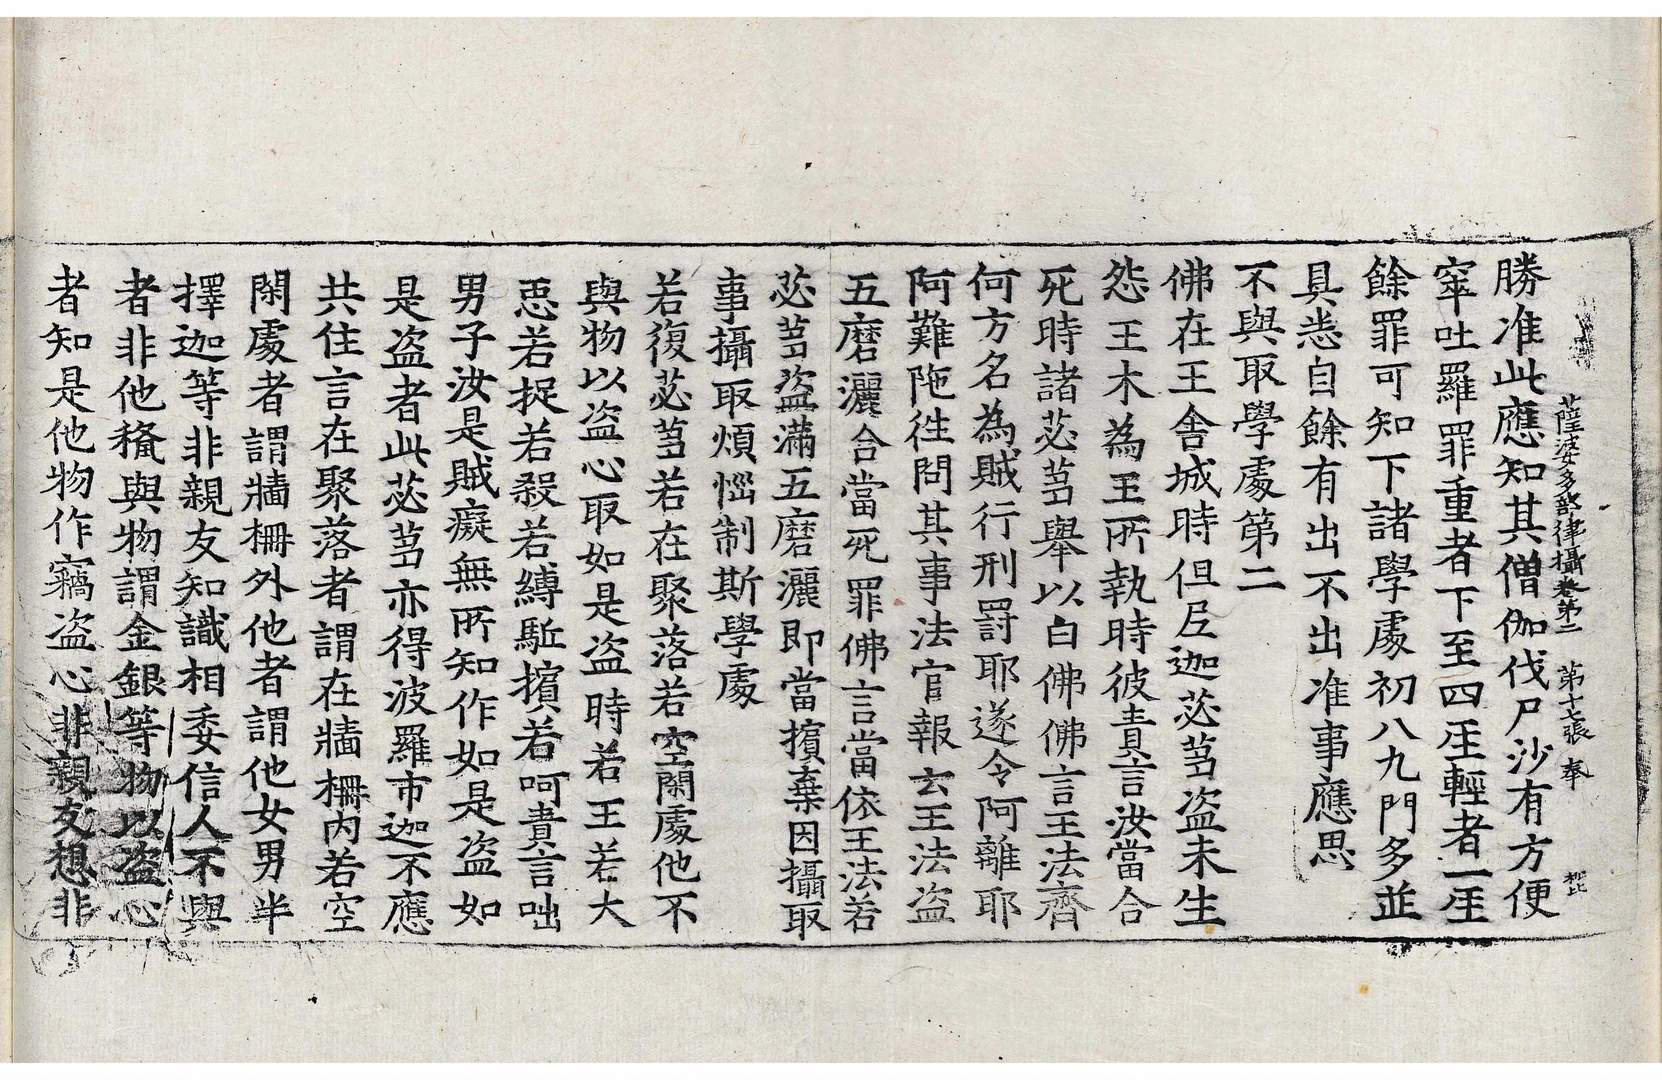 薩婆多部律攝卷第二　第十七張　奉
勝准此應知其僧伽伐尸沙有方便
窣吐羅罪重者下至四𤯔輕者一𤯔
餘罪可知下諸學處初八九門多並
具悉自餘有出不出准事應思
不與取學處第二
佛在王舍城時但尼迦苾芻盜未生
怨王木為王所執時彼責言汝當合
死時諸苾芻舉以白佛佛言王法齊
何方名為賊行刑罰耶遂令阿離耶
阿難陁徃問其事法官報云王法盜
五磨灑合當死罪佛言當依王法若
苾芻盜滿五磨灑即當擯棄因攝取
事攝取煩惱制斯學處
若復苾芻若在聚落若空閑處他不
與物以盜心取如是盜時若王若大
惡若捉若殺若縛駈擯若呵責言咄
男子汝是賊癡無所知作如是盜如
是盜者此苾芻亦得波羅市迦不應
共住言在聚落者謂在牆柵内若空
閑處者謂牆柵外他者謂他女男半
擇迦等非親友知識相委信人不與
者非他㧞與物謂金銀等物以盜心
者知是他物作竊盜心非親友想非